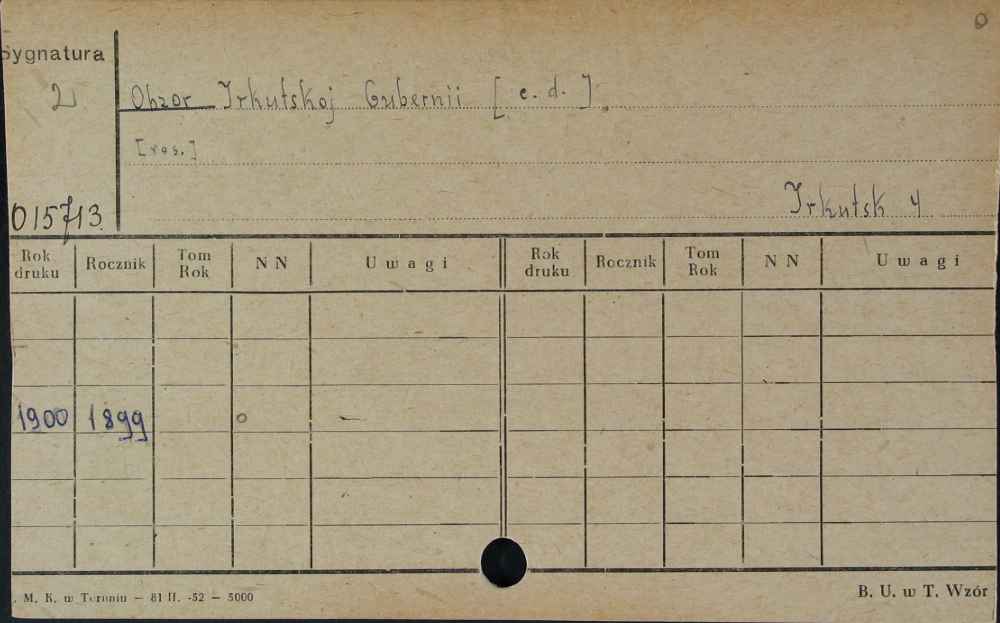 Sygnatura
Obzor Irkutskoj Gubernii [c. d.].
[ros.]
015713
Irkutsk 4
Rok druku Rocznik Tom Rok NN Uwagi Rok druku Rocznik Tom Rok NN Uwagi
1900 1899 0 —
. M. K. w Toruniu — 81 II. -52 — 5000 B. U. w T. Wzór